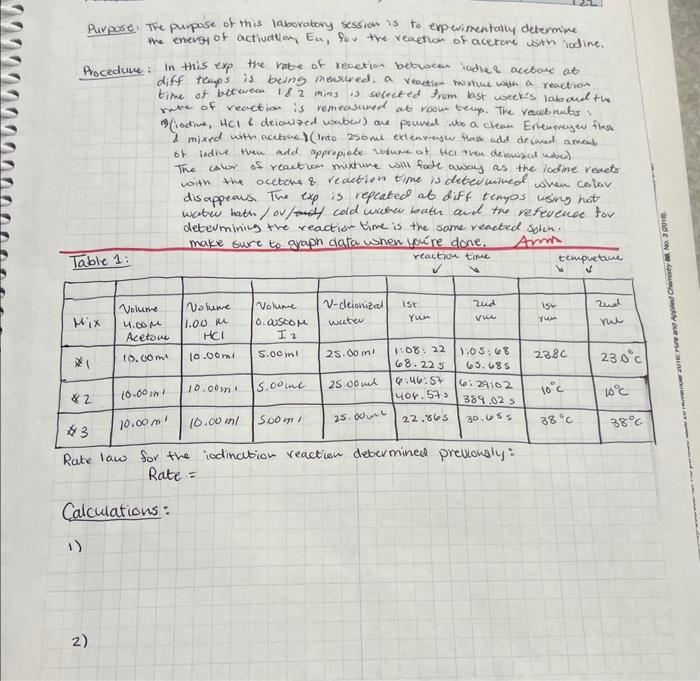 Purpose: The purpose of this laboratory session is to experimentally determine
the energy of activation, Ea, for the reaction of acetone with iodine.
Procedure: In this exp the rate of reaction between iodine & acetone at
diff temps is being measured. a reaction mixture with a reaction
time of between 1 & 2 mins is selected from last week's lab and the
rate of reaction is remeasured at room temp. The reactants:
(iodine, HCl & deionized water) are poured into a clean Erlenmeyer flask
& mixed with acetone.) (Into 250ml erlenmeyer flask add desired amount
of iodine then add appropiate volume of HCl then deionized water)
The color of reaction mixture will fade away as the iodine reacts
with the acetone & reaction time is determined when color
disappears. The exp is repeated at diff temps using hot
water bath / or / cold water bath and the reference for
determining the reaction time is the same reacted soln.
make sure to graph data when you're done.
Table 1:
reaction time
tempreture
Mix
Volume 4.00M Acetone
Volume 1.00 M HCl
Volume 0.00500M I2
V-deionized water
1st run
2nd run
1st run
2nd run
#1
10.00ml
10.00ml
5.00ml
25.00ml
1:08:22 68.22s
1:05:68 65.68s
23.8C
23.0°C
#2
10.00ml
10.00ml
5.00ml
25.00ml
6:46:57 406.57s
6:29:02 389.02s
10°C
10°C
#3
10.00ml
10.00ml
5.00ml
25.00ml
22.86s
30.65s
38°C
38°C
Rate law for the iodination reaction determined previously:
Rate =
Calculations:
1)
2)